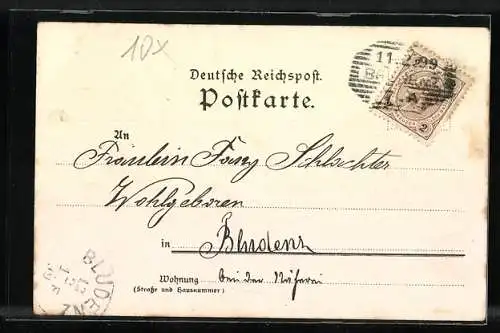 10x
11 99
Deutsche Reichspost.
Postkarte.
2
An
Fräulein Fany Schlachter
Wohlgeboren
in Bludenz
BLUDENZ
Wohnung bei der Näherei
(Straße und Hausnummer)